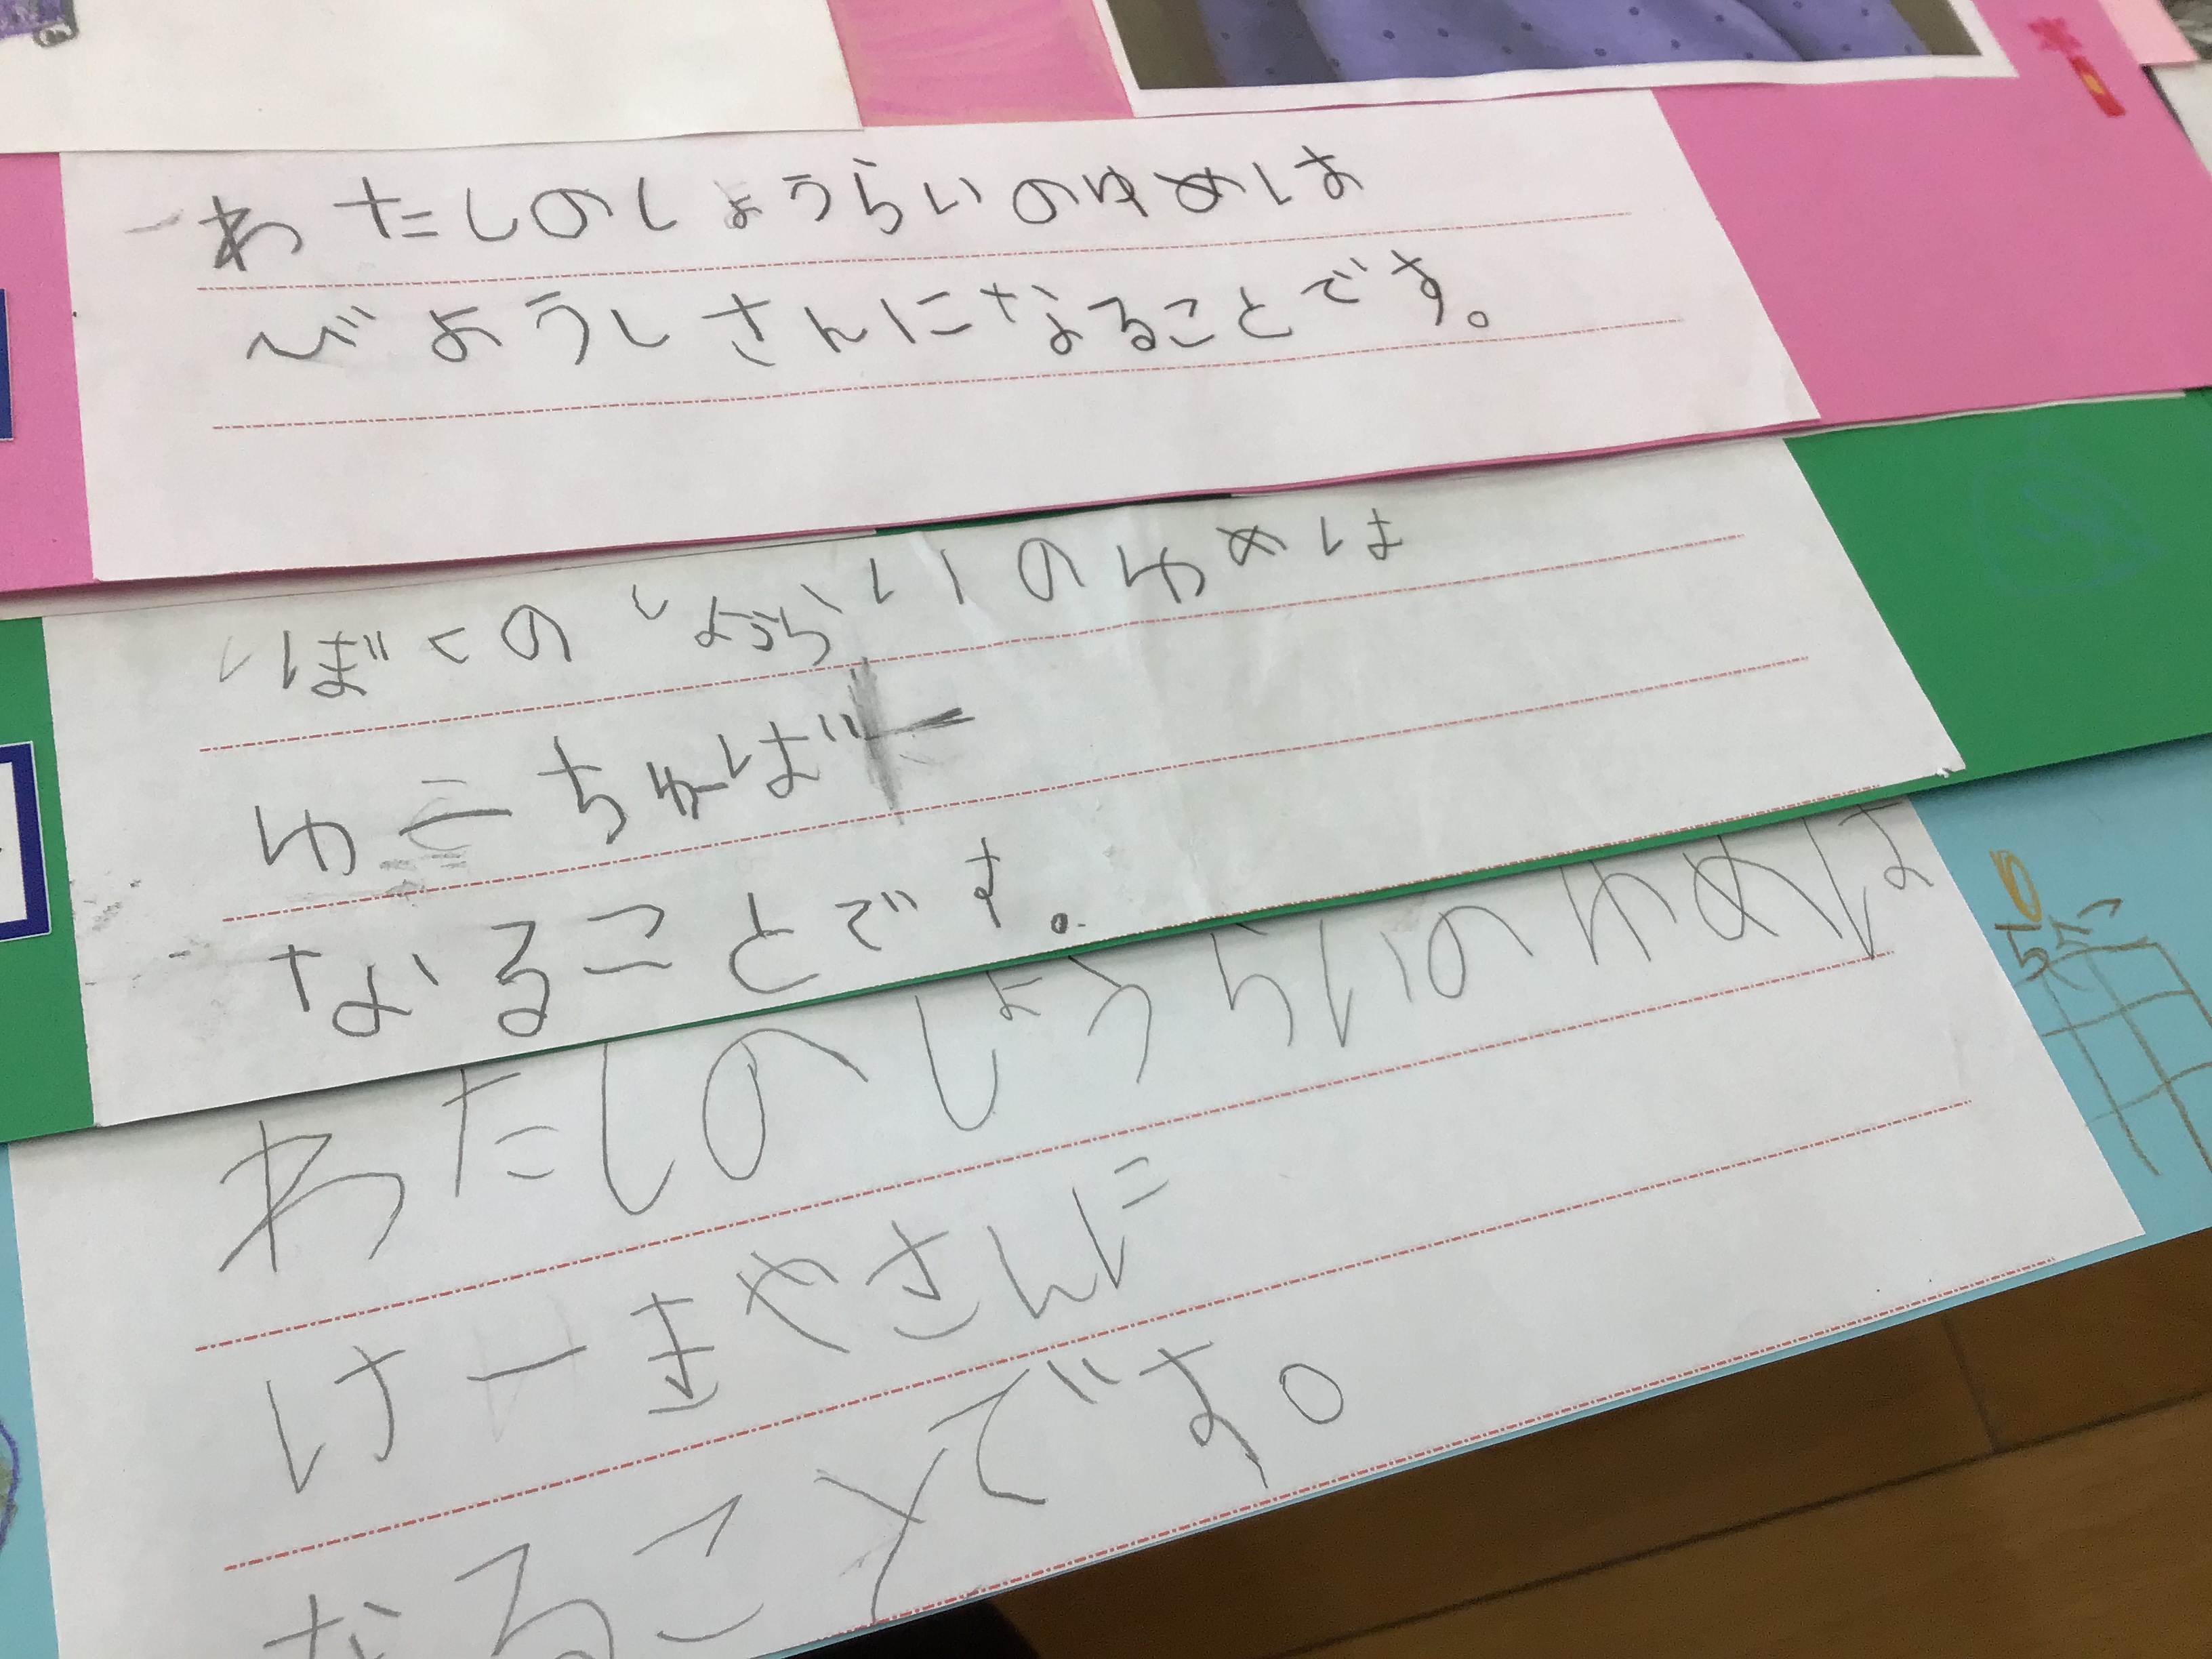 わたしのしょうらいのゆめは
びようしさんになることです。
ぼくのしょうらいのゆめは
ゆーちゅーばー
なることです。
わたしのしょうらいのゆめは
けーきやさんに
なることです。